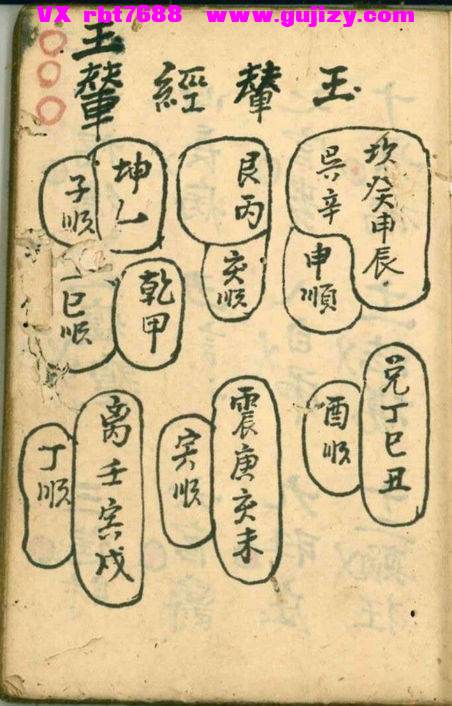 VX rbt7688 www.gujizy.com
玉輦經
玉輦
坎癸申辰
巽辛
申順
艮丙
亥順
坤乙
子順
乾甲
巳順
兌丁巳丑
酉順
震庚亥未
寅順
离壬寅戌
丁順